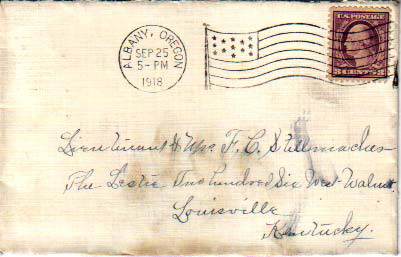 ALBANY, OREGON
SEP 25
5-PM
1918
U.S. POSTAGE
3 CENTS 3
Lieutenant & Mrs F. C. Stellmacher
The Leslie Two hundred Six West Walnut
Louisville
Kentucky.